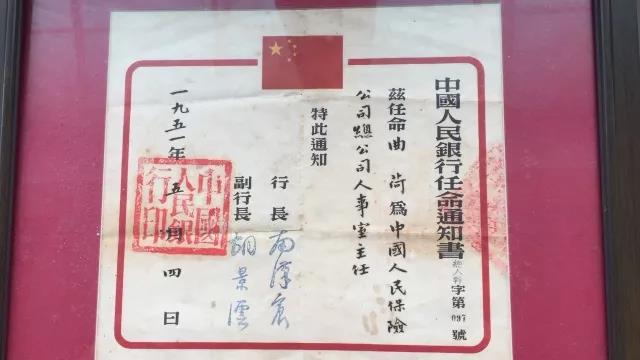 中國人民銀行任命通知書 總人幹字第097號
茲任命曲荷為中國人民保險
公司總公司人事室主任
特此通知
行長 南漢宸
副行長 胡景澐
一九五一年五月四日
中國人民銀行印